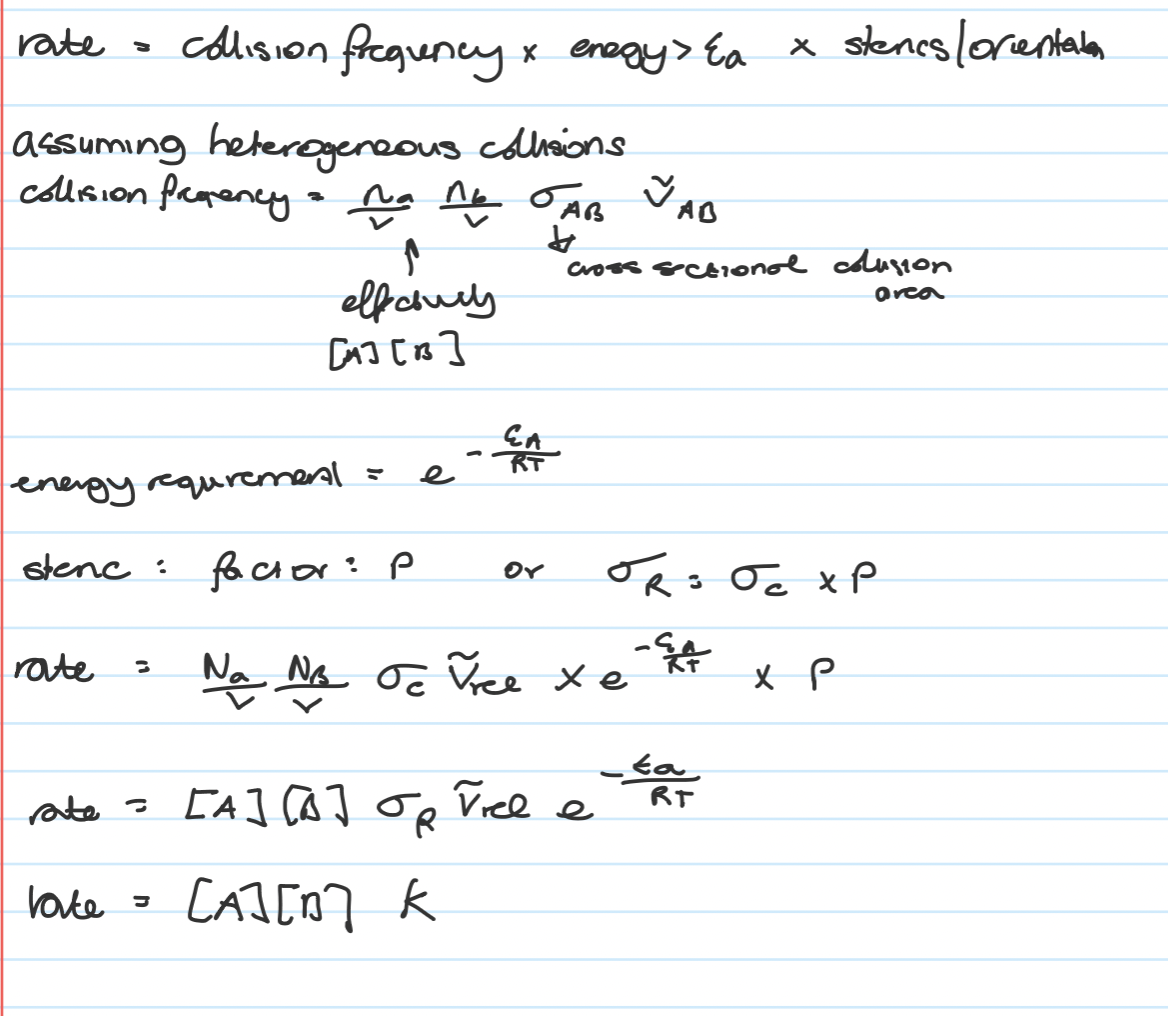 rate = collision frequency x enegy > Ea x sterics/orientatn
assuming heterogeneous collisions
collision frequency = na/V nb/V σAB ṽAB
cross sectional collision
area
effectively
[A][B]
energy requirement = e^-EA/RT
steric : factor : P or σR = σc x P
rate = Na/V NB/V σc ṽrel x e^-EA/RT x P
rate = [A][B] σR ṽrel e^-Ea/RT
rate = [A][B] k